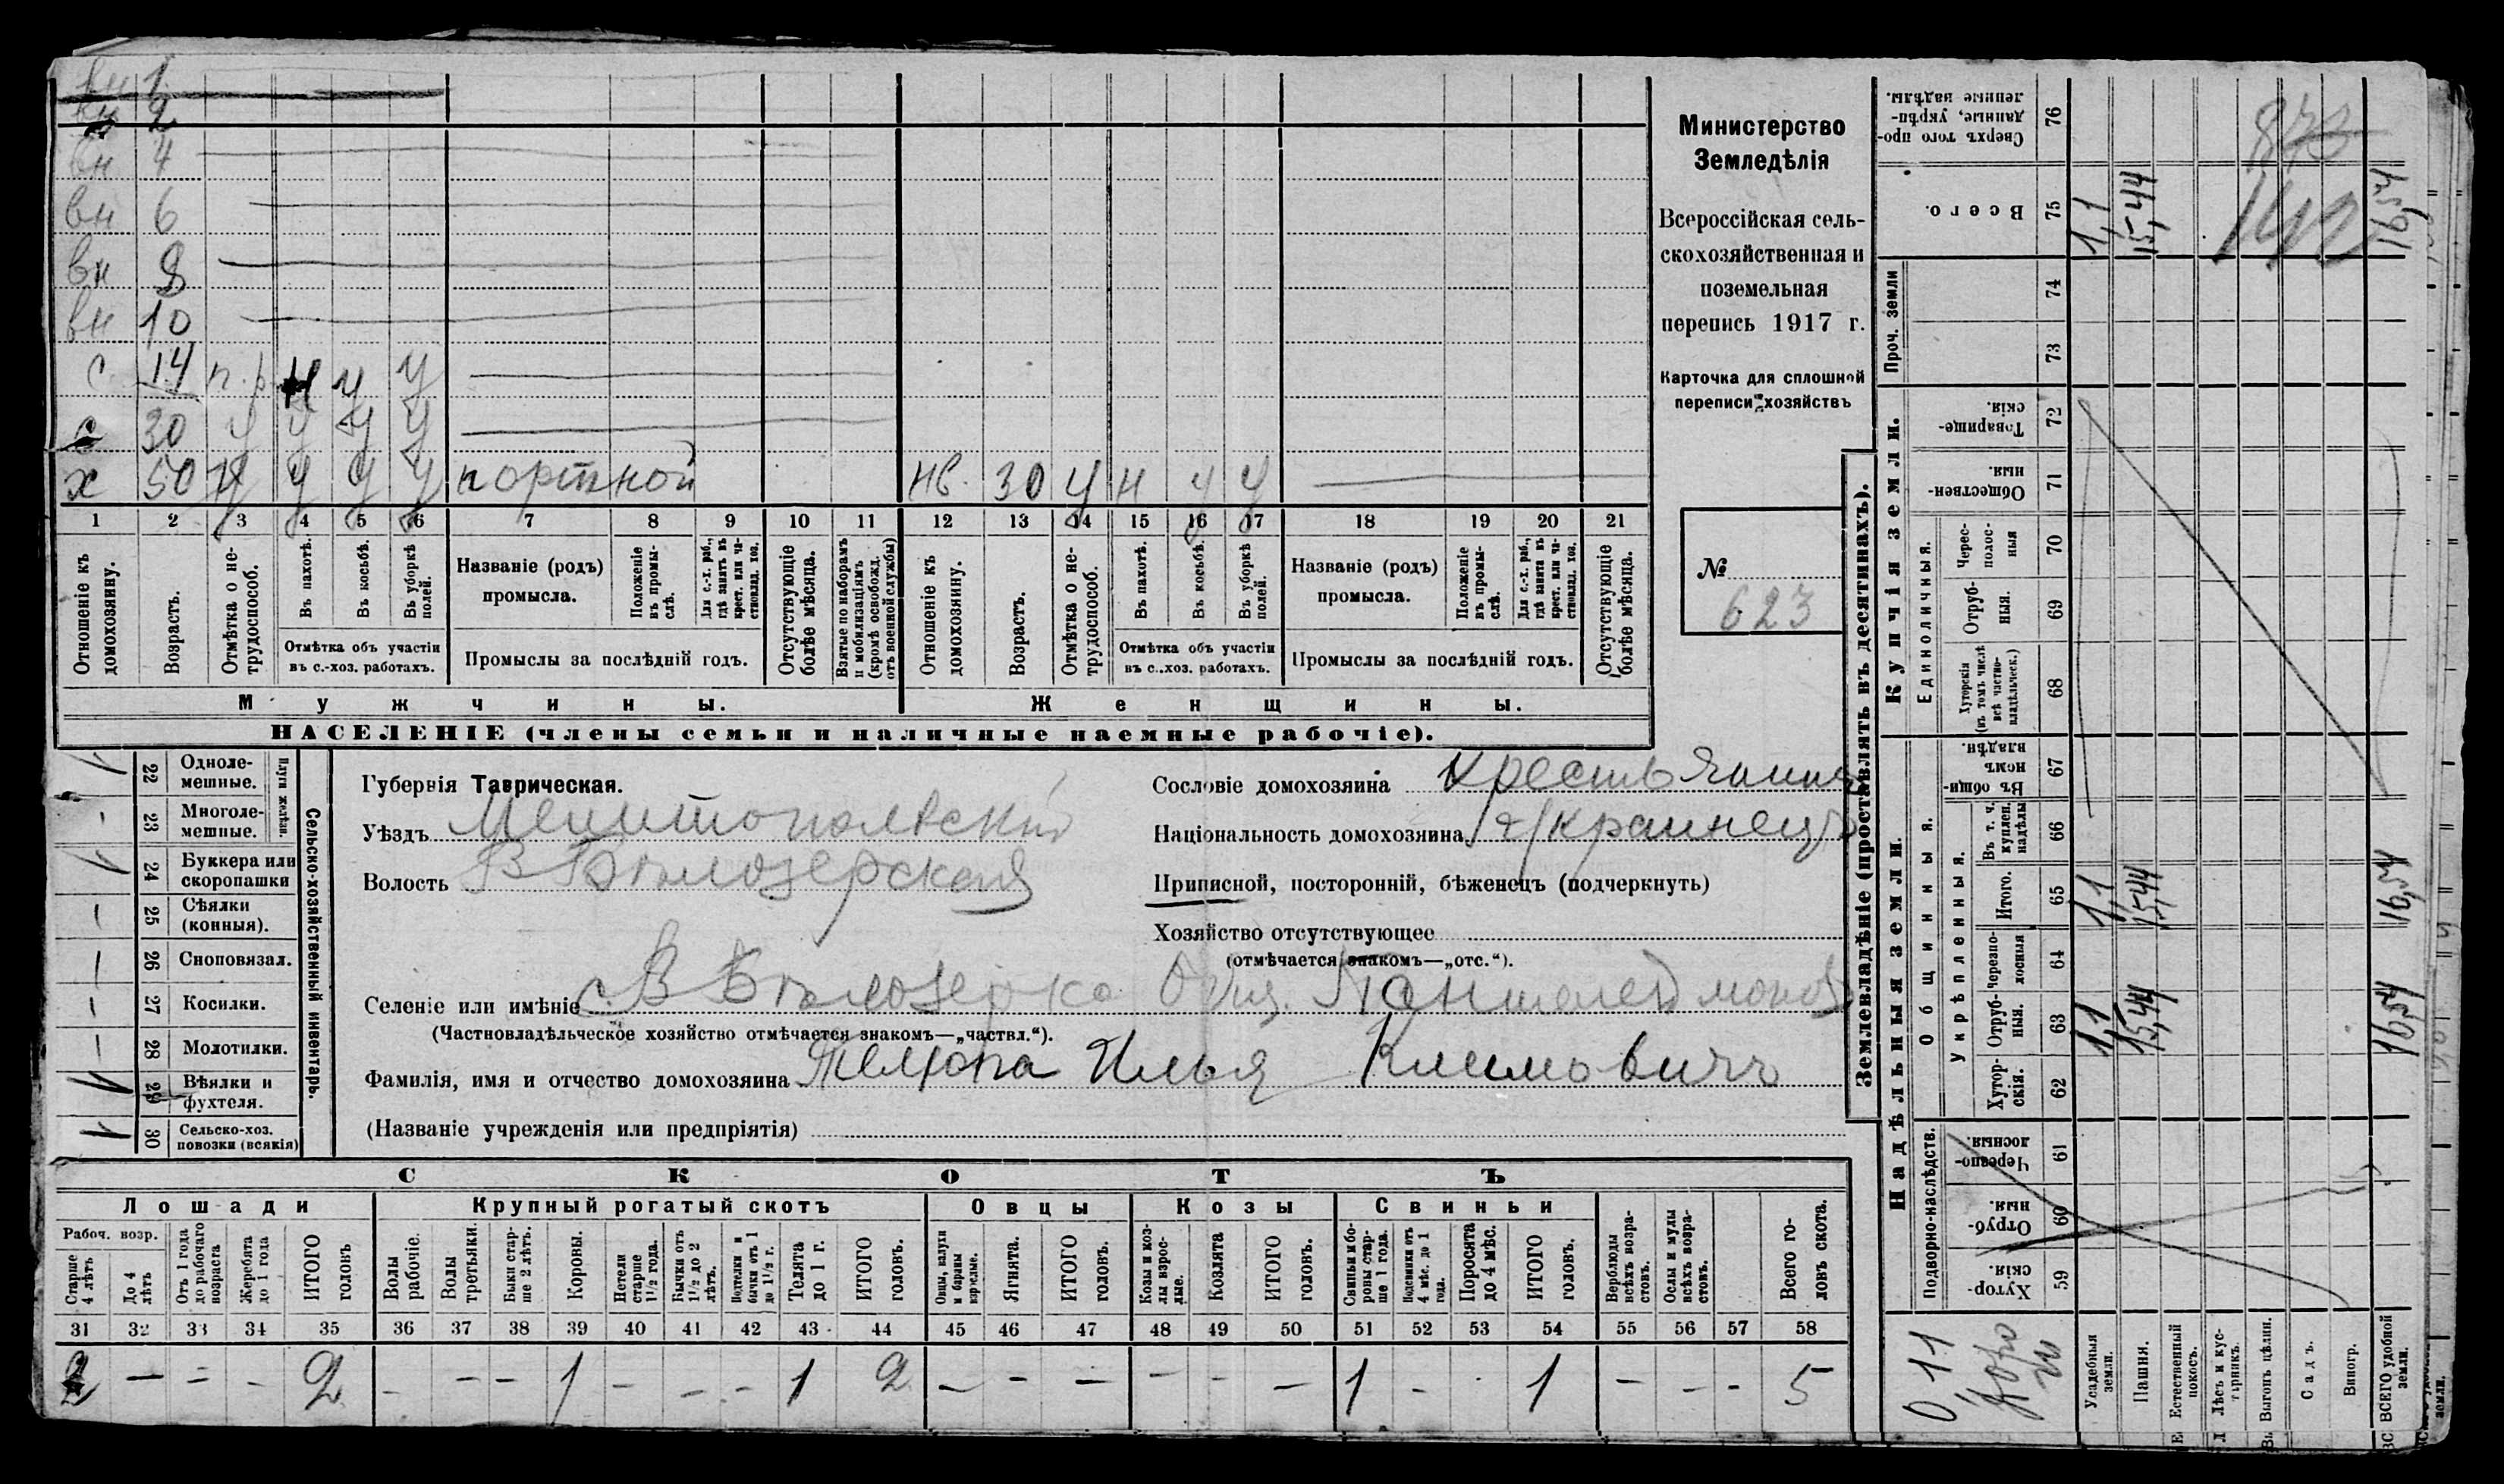 вн 1
вн 2
вн 4
вн 6
вн 8
вн 10
с 14 п.р. н у у
с 30 у у у у
х 50 у у у у портной нв. 30 у н у у
1 2 3 4 5 6 7 8 9 10 11 12 13 14 15 16 17 18 19 20 21
Отношеніе къ домохозяину.
Возрастъ.
Отмѣтка о нетрудоспособ.
Въ пахотѣ.
Въ косьбѣ.
Въ уборкѣ полей.
Отмѣтка объ участіи
въ с.-хоз. работахъ.
Названіе (родъ)
промысла.
Положеніе въ промыслѣ.
Для с.-х. раб., гдѣ занятъ въ крест. или частновлад. хоз.
Промыслы за послѣдній годъ.
Отсутствующіе болѣе мѣсяца.
Взятые по наборамъ и мобилизаціямъ (кромѣ освобожд. отъ военной службы)
Отношеніе къ домохозяину.
Возрастъ.
Отмѣтка о нетрудоспособ.
Въ пахотѣ.
Въ косьбѣ.
Въ уборкѣ полей.
Отмѣтка объ участіи
въ с.-хоз. работахъ.
Названіе (родъ)
промысла.
Положеніе въ промыслѣ.
Для с.-х. раб., гдѣ занята въ крест. или частновлад. хоз.
Промыслы за послѣдній годъ.
Отсутствующіе болѣе мѣсяца.
Мужчины. Женщины.
НАСЕЛЕНІЕ (члены семьи и наличные наемные рабочіе).
Министерство
Земледѣлія
Всероссійская сель-
скохозяйственная и
поземельная
перепись 1917 г.
Карточка для сплошной
переписи хозяйствъ
№
623
22 Одноле-
мешные.
23 Многоле-
мешные.
Плуги желѣзн.
24 Буккера или
скоропашки
25 Сѣялки
(конныя).
26 Сноповязал.
27 Косилки.
28 Молотилки.
29 Вѣялки и
фухтеля.
30 Сельско-хоз.
повозки (всякія)
Сельско-хозяйственный инвентарь.
Губернія Таврическая.
Уѣздъ Мелитопольский
Волость В Бѣлозерская
Селеніе или имѣніе с. В Бѣлозерка Общ. Пантелеймонов
(Частновладѣльческое хозяйство отмѣчается знакомъ—„частвл.“).
Фамилія, имя и отчество домохозяина Илья Климовичъ
(Названіе учрежденія или предпріятія)
Сословіе домохозяина крестьянинъ
Національность домохозяина украинецъ
Приписной, посторонній, бѣженецъ (подчеркнуть)
Хозяйство отсутствующее
(отмѣчается знакомъ—„отс.“).
СКОТЪ
Лошади Крупный рогатый скотъ Овцы Козы Свиньи
Рабоч. возр.
Старше 4 лѣтъ
До 4 лѣтъ
Отъ 1 года до рабочаго возраста
Жеребята до 1 года
ИТОГО головъ
Волы рабочіе.
Волы третьяки.
Быки старше 2 лѣтъ.
Коровы.
Нетели старше 1½ года.
Бычки отъ 1½ до 2 лѣтъ.
Полтелки и бычки отъ 1 до 1½ г.
Телята до 1 г.
ИТОГО головъ.
Овцы, валухи и бараны взрослые.
Ягнята.
ИТОГО головъ.
Козы и козлы взрослые.
Козлята
ИТОГО головъ.
Свиньи и боровы старше 1 года.
Подсвинки отъ 4 мѣс. до 1 года.
Поросята до 4 мѣс.
ИТОГО головъ.
Верблюды всѣхъ возрастовъ.
Ослы и мулы всѣхъ возрастовъ.
Всего головъ скота.
31 32 33 34 35 36 37 38 39 40 41 42 43 44 45 46 47 48 49 50 51 52 53 54 55 56 57 58
2 — — — 2 — — — 1 — — — 1 2 — — — — — — 1 — 1 — — — 5
Землевладѣніе (проставлять въ десятинахъ).
Надѣльныя земли. Купчія земли.
Подворно-наслѣдств. Общинныя. Укрѣпленныя. Единоличныя. Проч. земли
Хутор-
скія. 59
Отруб-
ныя. 60
Черезпо-
лосныя. 61
Хутор-
скія. 62
Отруб-
ныя. 63
черезпо-
лосныя 64
Итого. 65
Въ т. ч. куплен. надѣлы 66
Въ общин-
номъ
владѣн. 67
Хуторскія
(въ томъ числѣ всѣ частно-
владѣльческ.) 68
Отруб-
ныя. 69
Черес-
полос-
ныя 70
Обществен-
ныя. 71
Товарище-
скія. 72
73
74
Всего. 75
Сверхъ того про-
данные, укрѣп-
ленные надѣлы. 76
Усадебныя земли. 1,1 1,1 1,1
Пашня. 15,44 15,44 15,44
Естественный покосъ.
Лѣсъ и кустарникъ.
Выгонъ цѣлин.
Садъ.
Виногр.
ВСЕГО удобной земли. 16,54 16,54 16,54
0,11
873
142